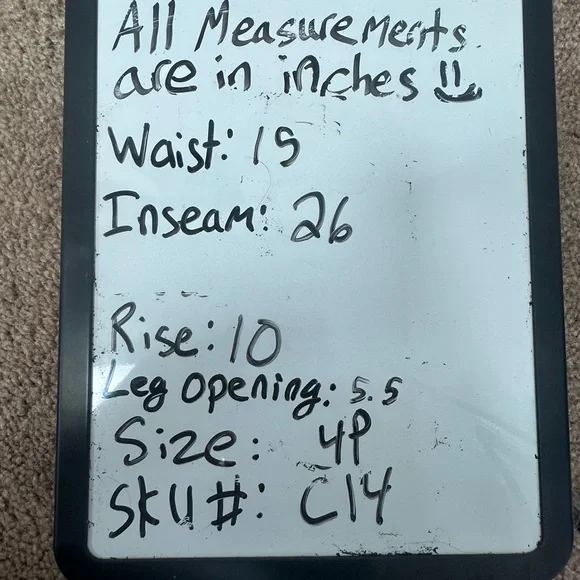 All Measurements
are in inches
Waist: 15
Inseam: 26
Rise: 10
Leg Opening: 5.5
Size: 4P
SKU#: C14